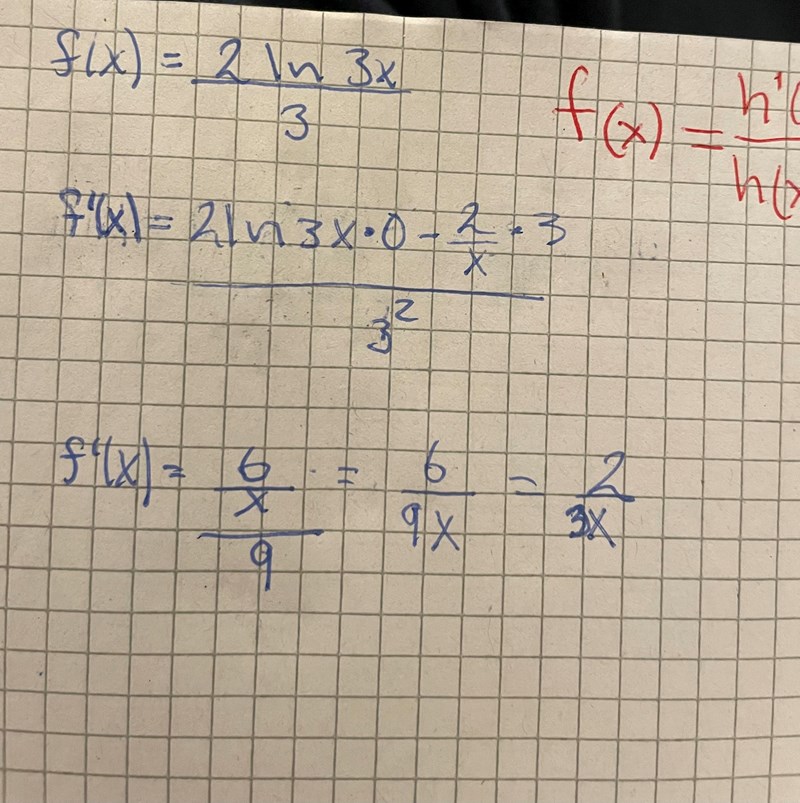 f(x) = 2 ln 3x / 3
f(x) = h'( / h(x
f'(x) = 2 ln 3x · 0 - 2/x · 3 / 3²
f'(x) = 6/x / 9 = 6/9x = 2/3x